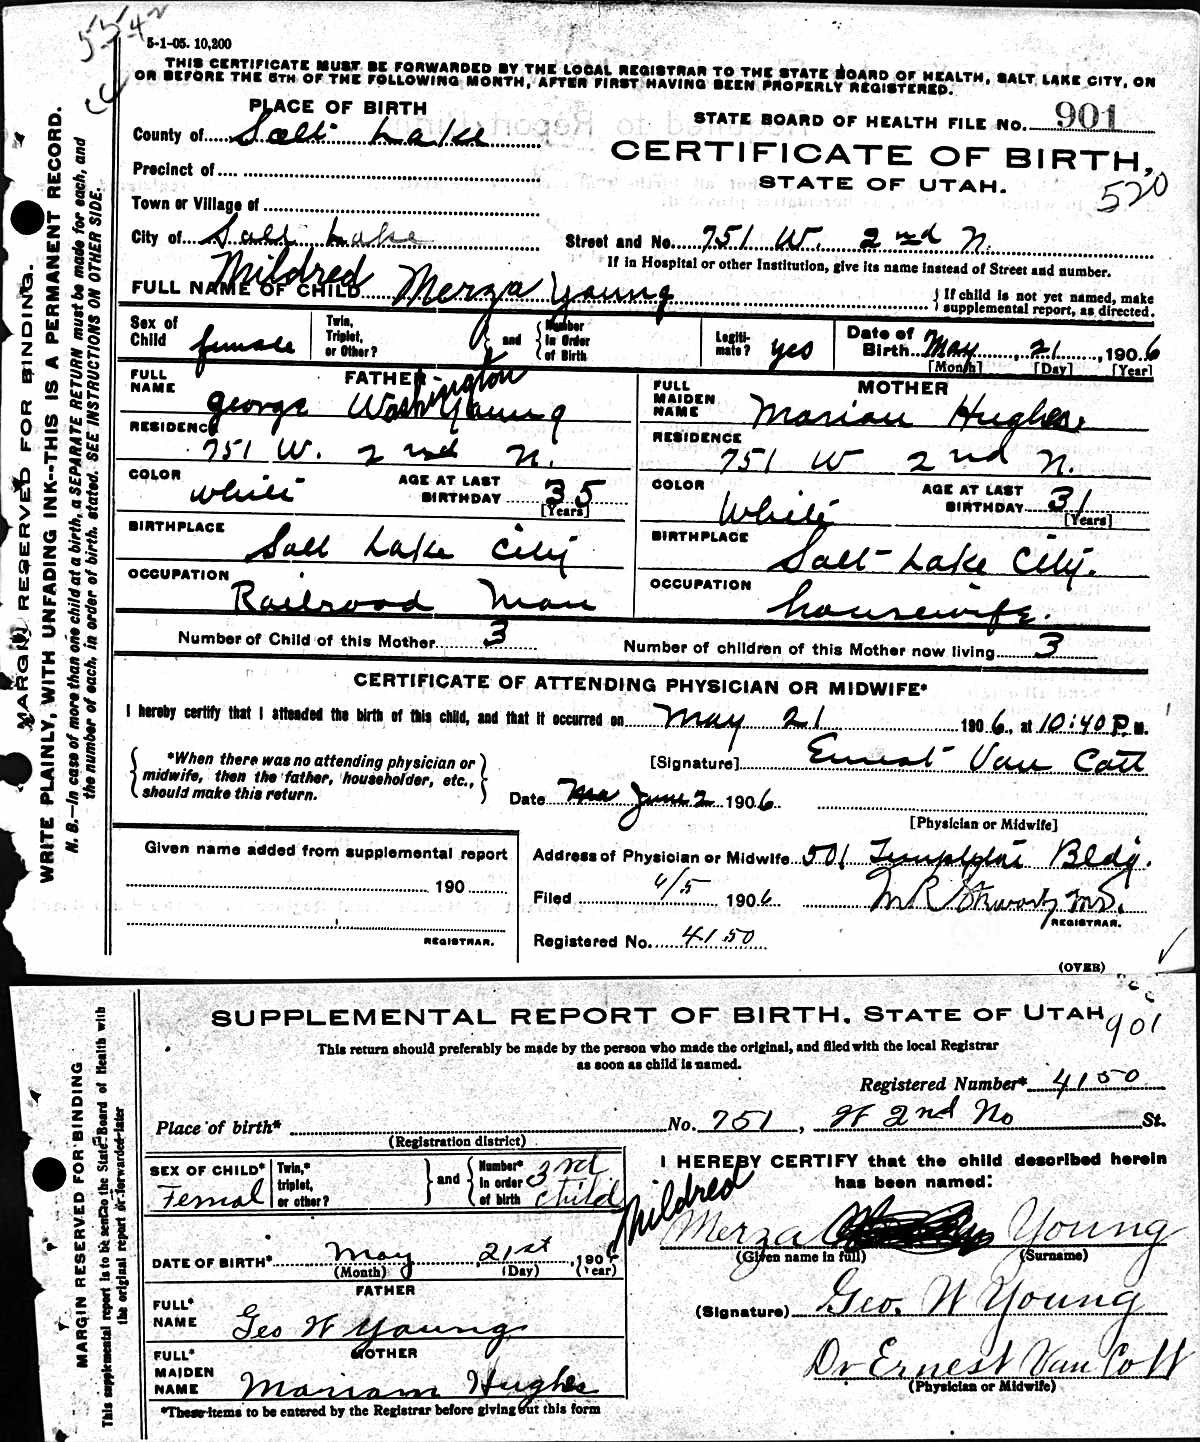 5542
5-1-05. 10,200
THIS CERTIFICATE MUST BE FORWARDED BY THE LOCAL REGISTRAR TO THE STATE BOARD OF HEALTH, SALT LAKE CITY, ON
OR BEFORE THE 5TH OF THE FOLLOWING MONTH, AFTER FIRST HAVING BEEN PROPERLY REGISTERED.
MARGIN RESERVED FOR BINDING.
WRITE PLAINLY, WITH UNFADING INK--THIS IS A PERMANENT RECORD.
N. B.—In case of more than one child at a birth, a SEPARATE RETURN must be made for each, and
the number of each, in order of birth, stated. SEE INSTRUCTIONS ON OTHER SIDE.
PLACE OF BIRTH
County of Salt Lake
Precinct of
Town or Village of
City of Salt Lake
STATE BOARD OF HEALTH FILE No. 901
CERTIFICATE OF BIRTH,
STATE OF UTAH.
520
Street and No. 751 W. 2nd N.
If in Hospital or other Institution, give its name instead of Street and number.
FULL NAME OF CHILD Mildred Merza Young
If child is not yet named, make
supplemental report, as directed.
Sex of Child female
Twin, Triplet, or Other?
and
Number in Order of Birth
Legitimate? yes
Date of Birth May, 21, 1906
[Month] [Day] [Year]
FATHER
FULL NAME George Washington Young
RESIDENCE 751 W. 2nd N.
COLOR White
AGE AT LAST BIRTHDAY 35
[Years]
BIRTHPLACE Salt Lake City
OCCUPATION Railroad Man
MOTHER
FULL MAIDEN NAME Marian Hughes
RESIDENCE 751 W 2nd N.
COLOR White
AGE AT LAST BIRTHDAY 31
[Years]
BIRTHPLACE Salt Lake City.
OCCUPATION housewife.
Number of Child of this Mother 3
Number of children of this Mother now living 3
CERTIFICATE OF ATTENDING PHYSICIAN OR MIDWIFE*
I hereby certify that I attended the birth of this child, and that it occurred on May 21 1906, at 10:40 P.M.
*When there was no attending physician or
midwife, then the father, householder, etc.,
should make this return.
[Signature] Ernest Van Cott
Date June 2 1906
[Physician or Midwife]
Given name added from supplemental report
190
REGISTRAR.
Address of Physician or Midwife 501 Bldg.
Filed 6/5 1906
REGISTRAR.
Registered No. 4150
(OVER)
SUPPLEMENTAL REPORT OF BIRTH. STATE OF UTAH
901
This return should preferably be made by the person who made the original, and filed with the local Registrar
as soon as child is named.
MARGIN RESERVED FOR BINDING
This supplemental report is to be sent to the State Board of Health with
the original report or forwarded later
Registered Number* 4150
Place of birth* No. 751, W 2nd No St.
(Registration district)
SEX OF CHILD* Femal
Twin,* triplet, or other?
and
Number* in order of birth 3rd child
DATE OF BIRTH* May, 21st, 190
(Month) (Day) (Year)
FATHER
FULL* NAME Geo W Young
MOTHER
FULL* MAIDEN NAME Mariam Hughes
*These items to be entered by the Registrar before giving out this form
I HEREBY CERTIFY that the child described herein
has been named:
Mildred Merza Young
(Given name in full) (Surname)
(Signature) Geo. W Young
Dr Ernest Van Cott
(Physician or Midwife)